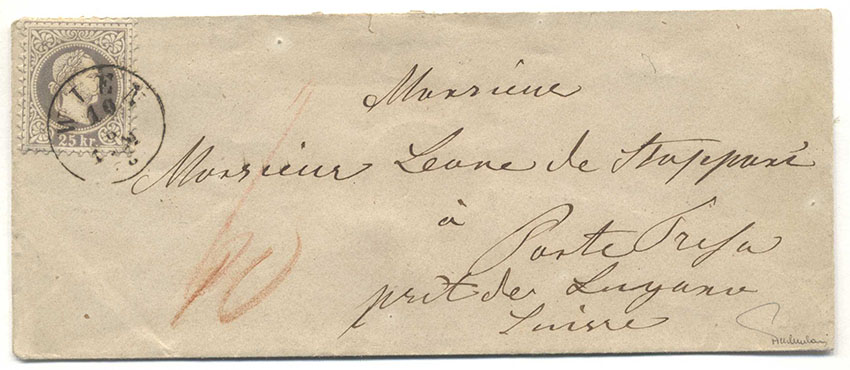 WIEN
19
25 kr.
Monsieur
Monsieur Leone de Stoppani
à
Ponte Tresa
prèt de Lugano
Suisse